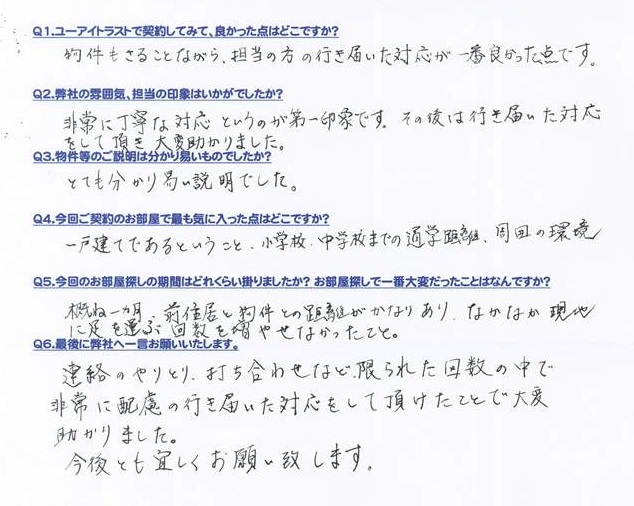 Q1.ユーアイトラストで契約してみて、良かった点はどこですか?
物件もさることながら、担当の方の行き届いた対応が一番良かった点です。
Q2.弊社の雰囲気、担当の印象はいかがでしたか?
非常に丁寧な対応というのが第一印象です。その後は行き届いた対応
をして頂き大変助かりました。
Q3.物件等のご説明は分かり易いものでしたか?
とても分かり易い説明でした。
Q4.今回ご契約のお部屋で最も気に入った点はどこですか?
一戸建てであるということ、小学校、中学校までの通学距離、周囲の環境
Q5.今回のお部屋探しの期間はどれくらい掛りましたか? お部屋探しで一番大変だったことはなんですか?
概ね一カ月、前住居と物件との距離がかなりあり、なかなか現地
に足を運ぶ回数を増やせなかったこと。
Q6.最後に弊社へ一言お願いいたします。
連絡のやりとり、打ち合わせなど、限られた回数の中で
非常に配慮の行き届いた対応をして頂けたことで大変
助かりました。
今後とも宜しくお願い致します。